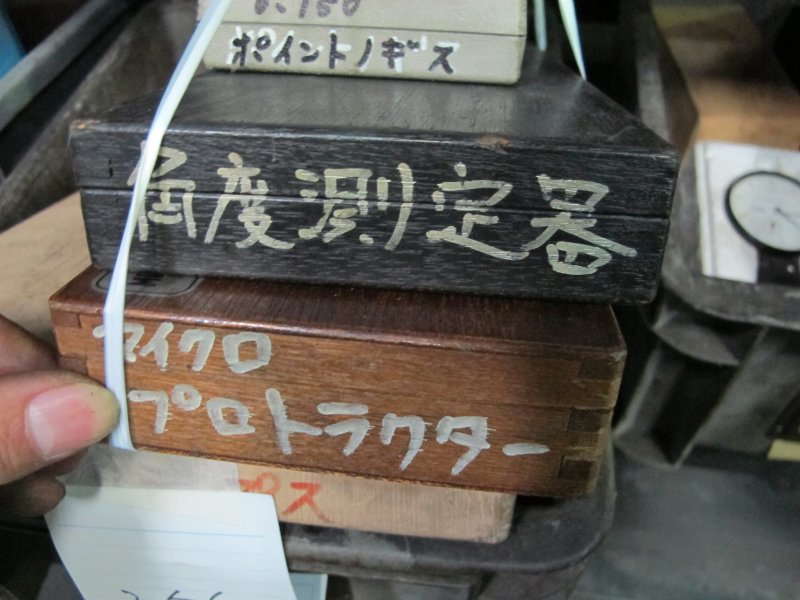 ポイントノギス
角度測定器
マイクロ
プロトラクター
プス